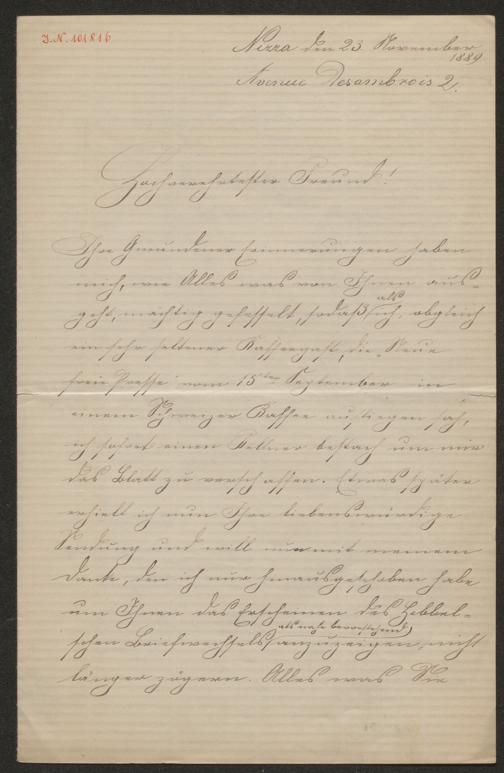 J.N. 101816
Nizza den 23 November
1889
Avenue Desambrois 2.
Hochverehrtester Freund!
Ihre Gmundener Erinnerungen haben
mich, wie Alles was von Ihnen aus-
geht, mächtig gefesselt, sodaß ich, obgleich
als
ein sehr seltener Kaffeegast, die „Neue
freie Presse" vom 15ten September in
einem Schweizer Kaffee aufliegen sah,
ich sofort einen Kellner bestach um mir
das Blatt zu verschaffen. Etwas später
erhielt ich nun Ihre liebenswürdige
Sendung und will nun mit meinem
Danke, den ich nur hinausgeschoben habe
um Ihnen das Erscheinen des Hebbel-
schen Briefwechsels anzuzeigen, nicht
als nahe bevorstehend
länger zögern. Alles was Sie